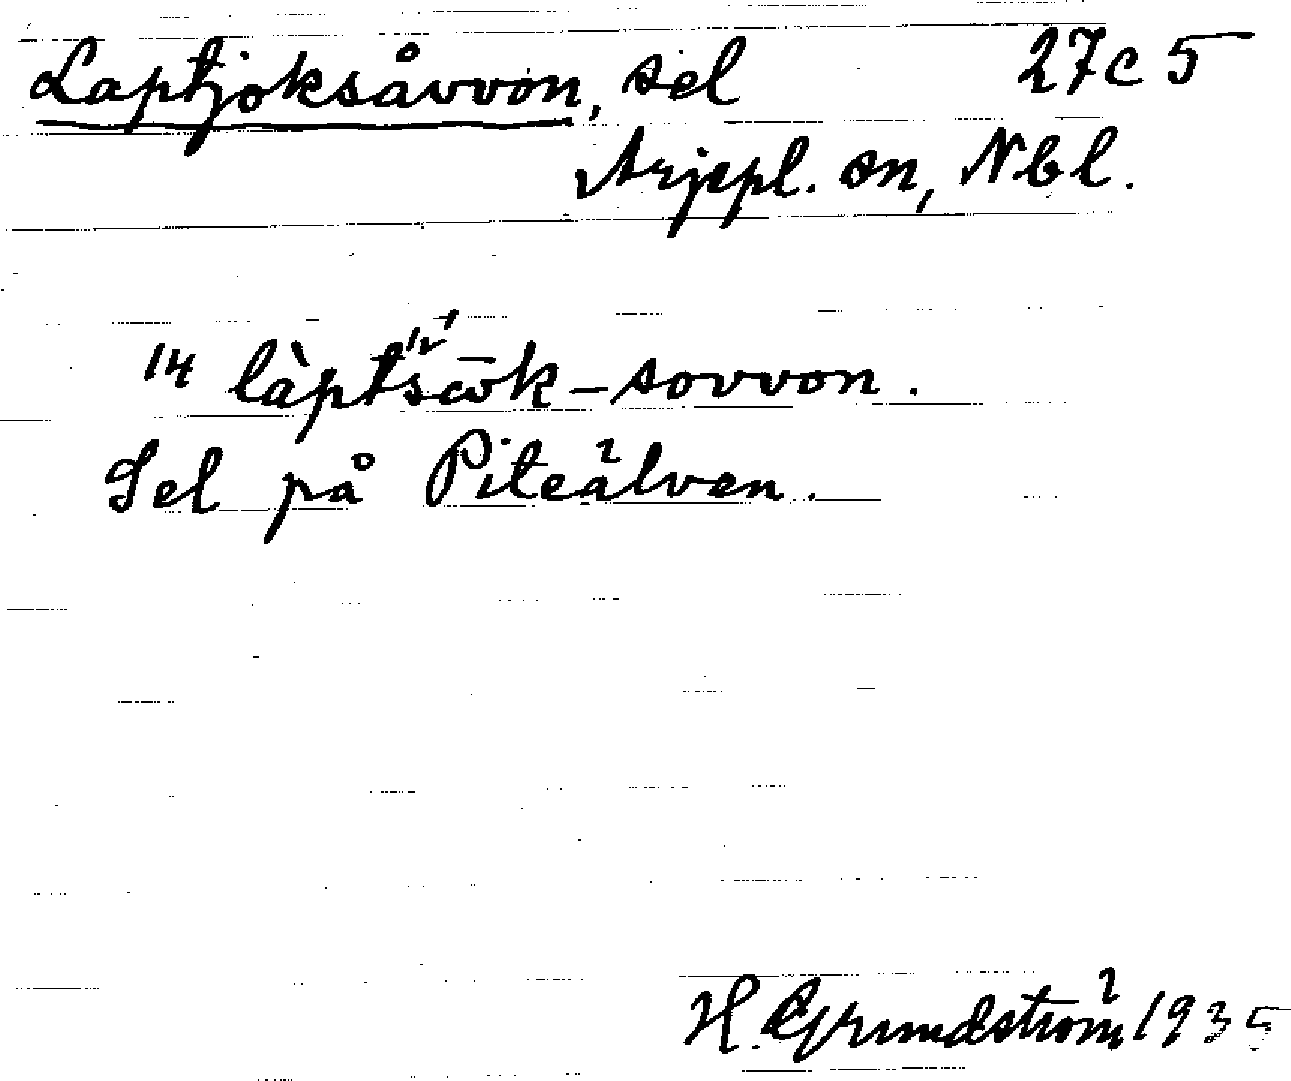 Laptjoksåvvon, sel 27c5
Arjepl. sn, Nbl.
14 làptsω̄k-sovvon.
Sel på Piteälven.
H. Grundström 1935